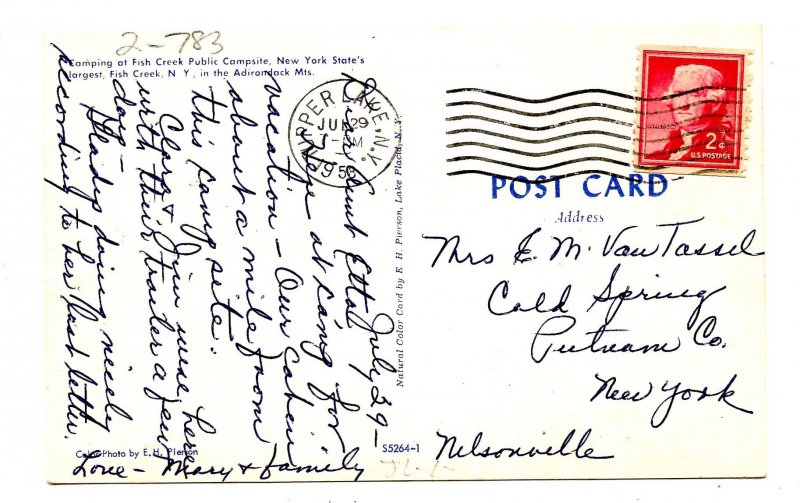 2-783
Camping at Fish Creek Public Campsite, New York State's
largest, Fish Creek, N Y, in the Adirondack Mts.
July 29-
Dear Aunt Etta,
at camp for
vacation - Our cabin
about a mile from
this camp site.
Clara & Jim were here
with their trailer a few
days.
Gladys doing nicely
according to her last letter.
Love - Mary & family
Color Photo by E. H. Pierson
S5264-1
Natural Color Card by E. H. Pierson, Lake Placid, N. Y.
TUPPER LAKE N.Y.
29
PM
2¢
U.S. POSTAGE
POST CARD
Address
Mrs E. M. Van Tassel
Cold Spring
Putnam Co.
New York
Nelsonville